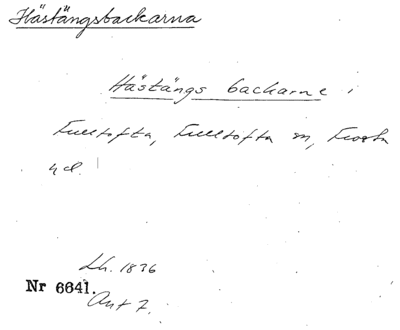 Hästängsbackarna
Hästängs backarne i
Fulltofta, Fulltofta sn, Frosta
hd.
Lh. 1836
Nr 6641.
Ant 7.